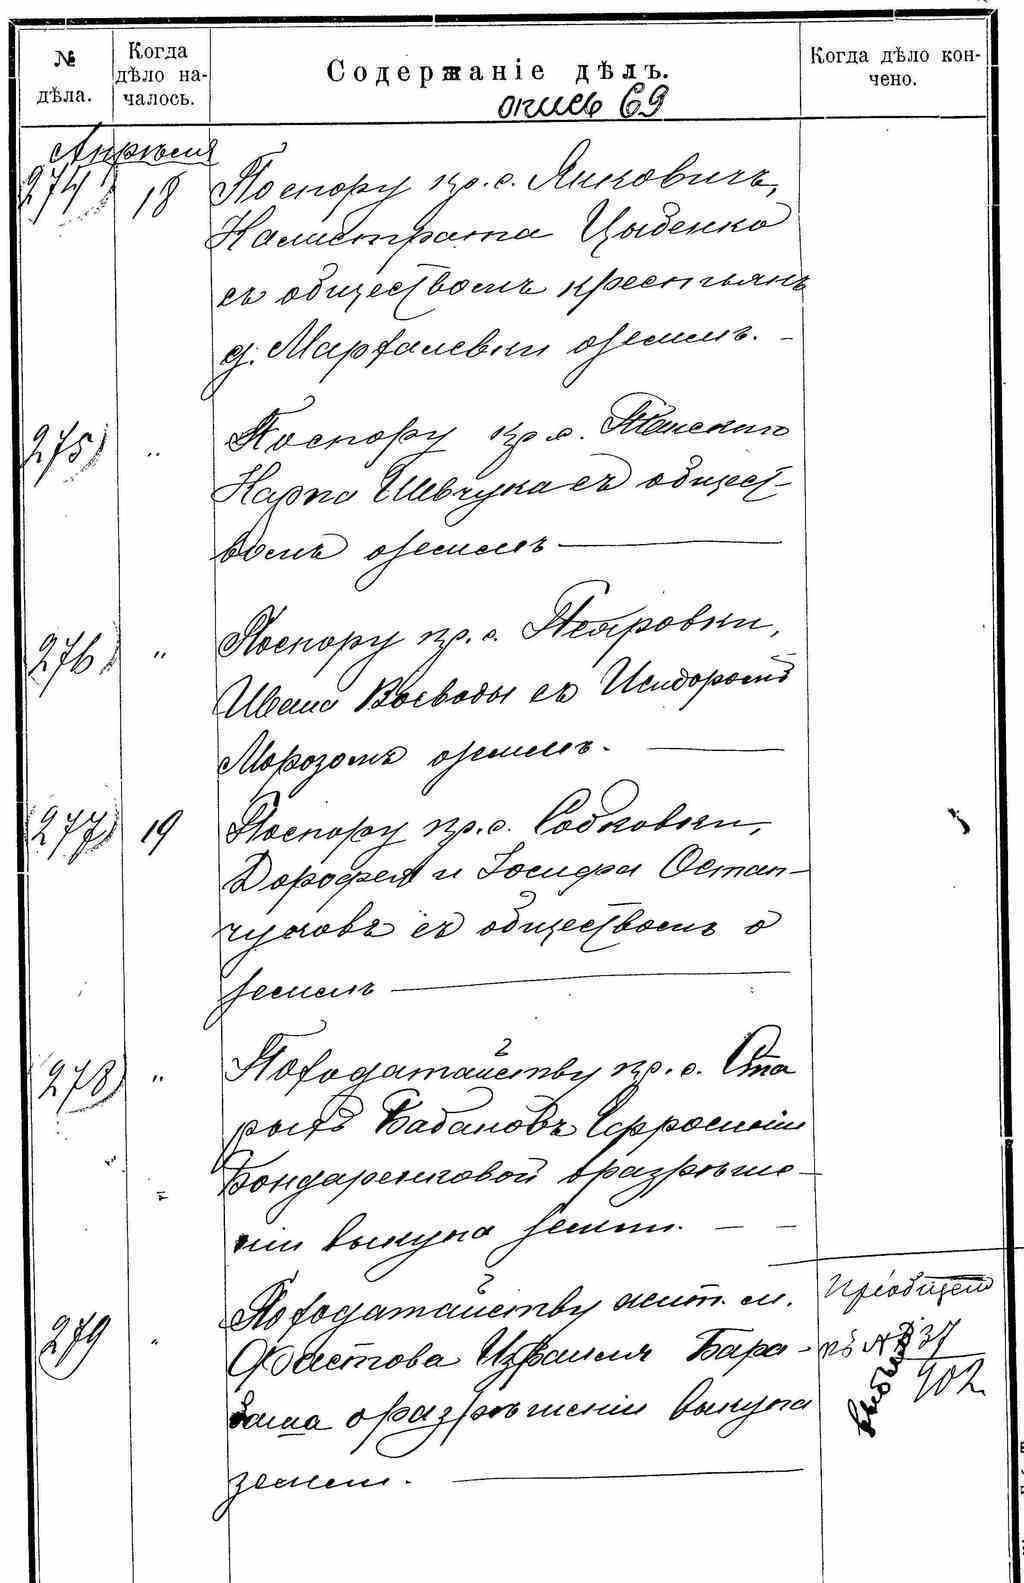 № дѣла.
Когда дѣло на-
чалось.
Содержаніе дѣлъ.
Когда дѣло кон-
чено.
опись 69
Апрѣля
274) 18 По спору кр. с. Янковичъ,
Калистрата Цыбенко
съ обществомъ крестьянъ
д. Марфалевки о землѣ. -
275) " По спору кр. с.
Карпа Шевчука съ общест-
вомъ о землѣ
276) " По спору кр. с.
Ивана Воеводы съ Исидоромъ
Морозомъ о землѣ.
277) 19 По спору кр. с. Собковки,
Дорофея и Іосифа Остап-
чуковъ съ обществомъ о
землѣ
278) " По ходатайству кр. с. Ста
рыхъ Бабановъ Ефросиніи
Бондаренковой о разрѣше-
ніи выкупа земли. - -
279 " По ходатайству жит. м.
Фастова Израиля Бара-
баша о разрѣшеніи выкупа
земли.
Пріобщено
къ № 37
902
выбыло